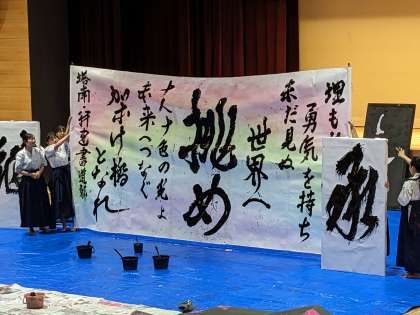 埋も
勇気を持ち
未だ見ぬ
世界へ
挑め
十人十色の光よ
未来へつなぐ
かけ橋となれ
塔南・開建書道部